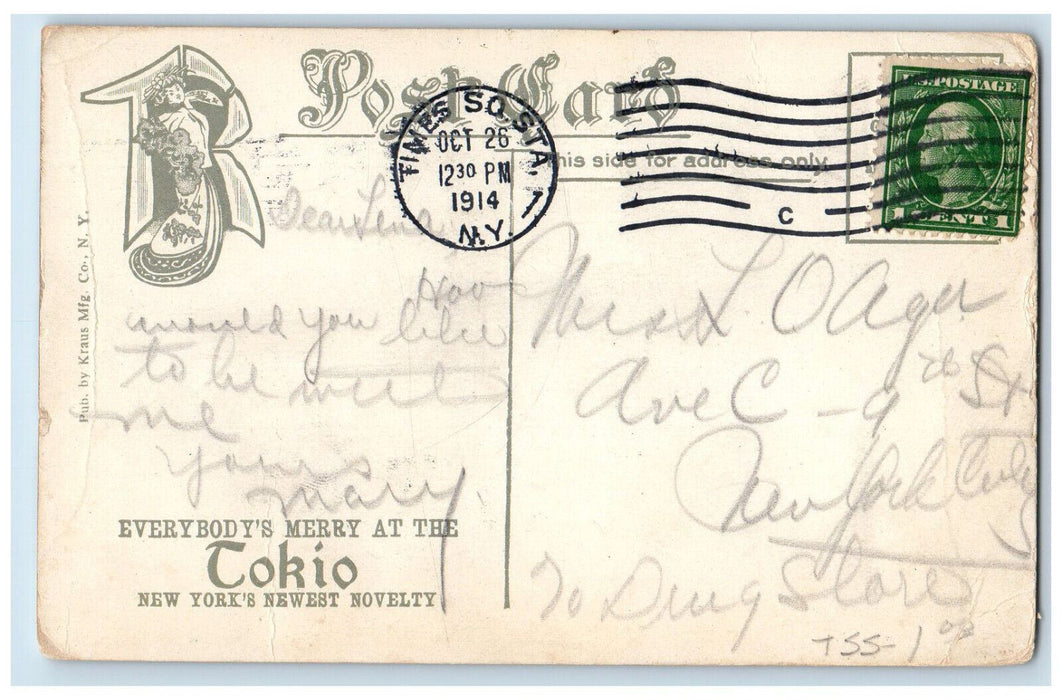 Post Card
This side for address only
TIMES SQ. STA.
OCT 26
12 30 PM
1914
N.Y.
1
C
U.S. POSTAGE
1 CENT 1
Pub. by Kraus Mfg. Co., N. Y.
Dear Lena
How
would you like
to be with
me
Yours
Mary
EVERYBODY'S MERRY AT THE
Tokio
NEW YORK'S NEWEST NOVELTY
Miss L O Ager
Ave C - 9th St
New York City
To Drug Store
TSS-1